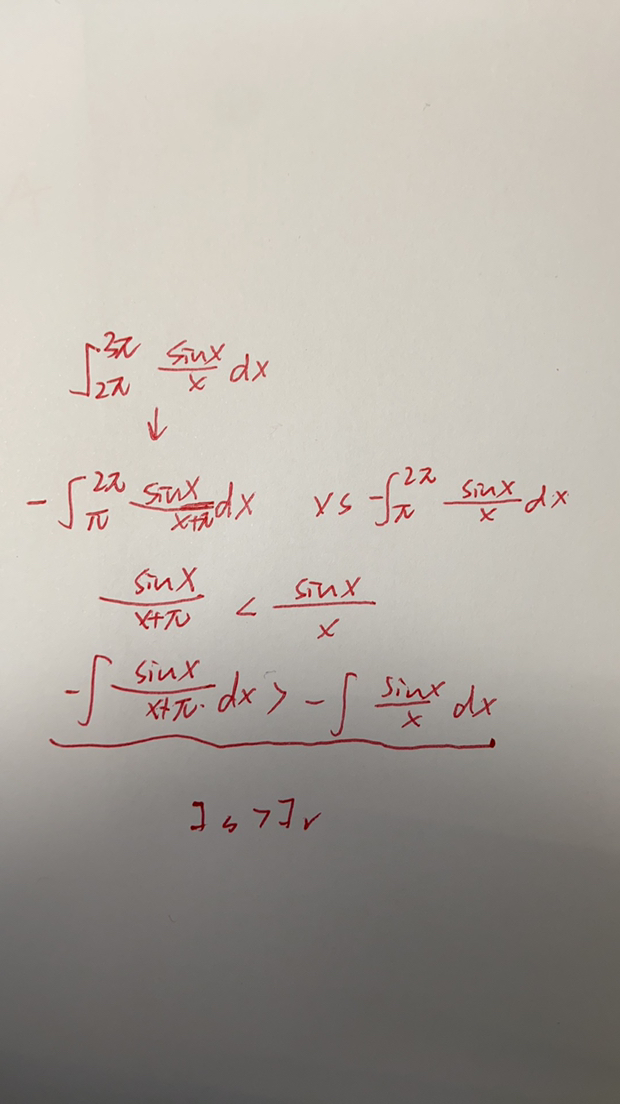 ∫_{2π}^{3π} sinx/x dx
↓
-∫_{π}^{2π} sinx/(x+π) dx vs -∫_{π}^{2π} sinx/x dx
sinx/(x+π) < sinx/x
-∫ sinx/(x+π) dx > -∫ sinx/x dx